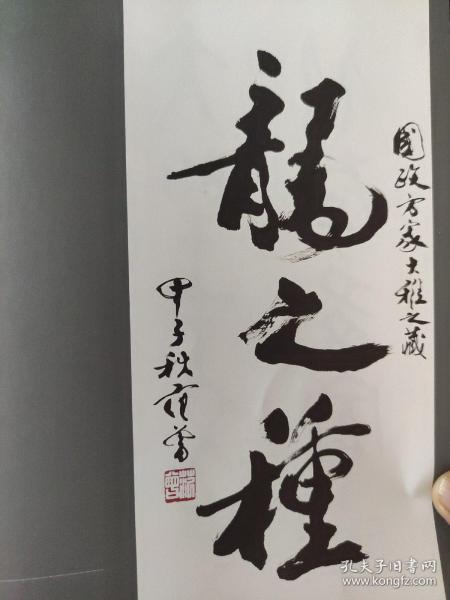 國政方家大雅之藏
龍之種
甲子秋范曾
孔夫子旧书网
www.kongfz.com